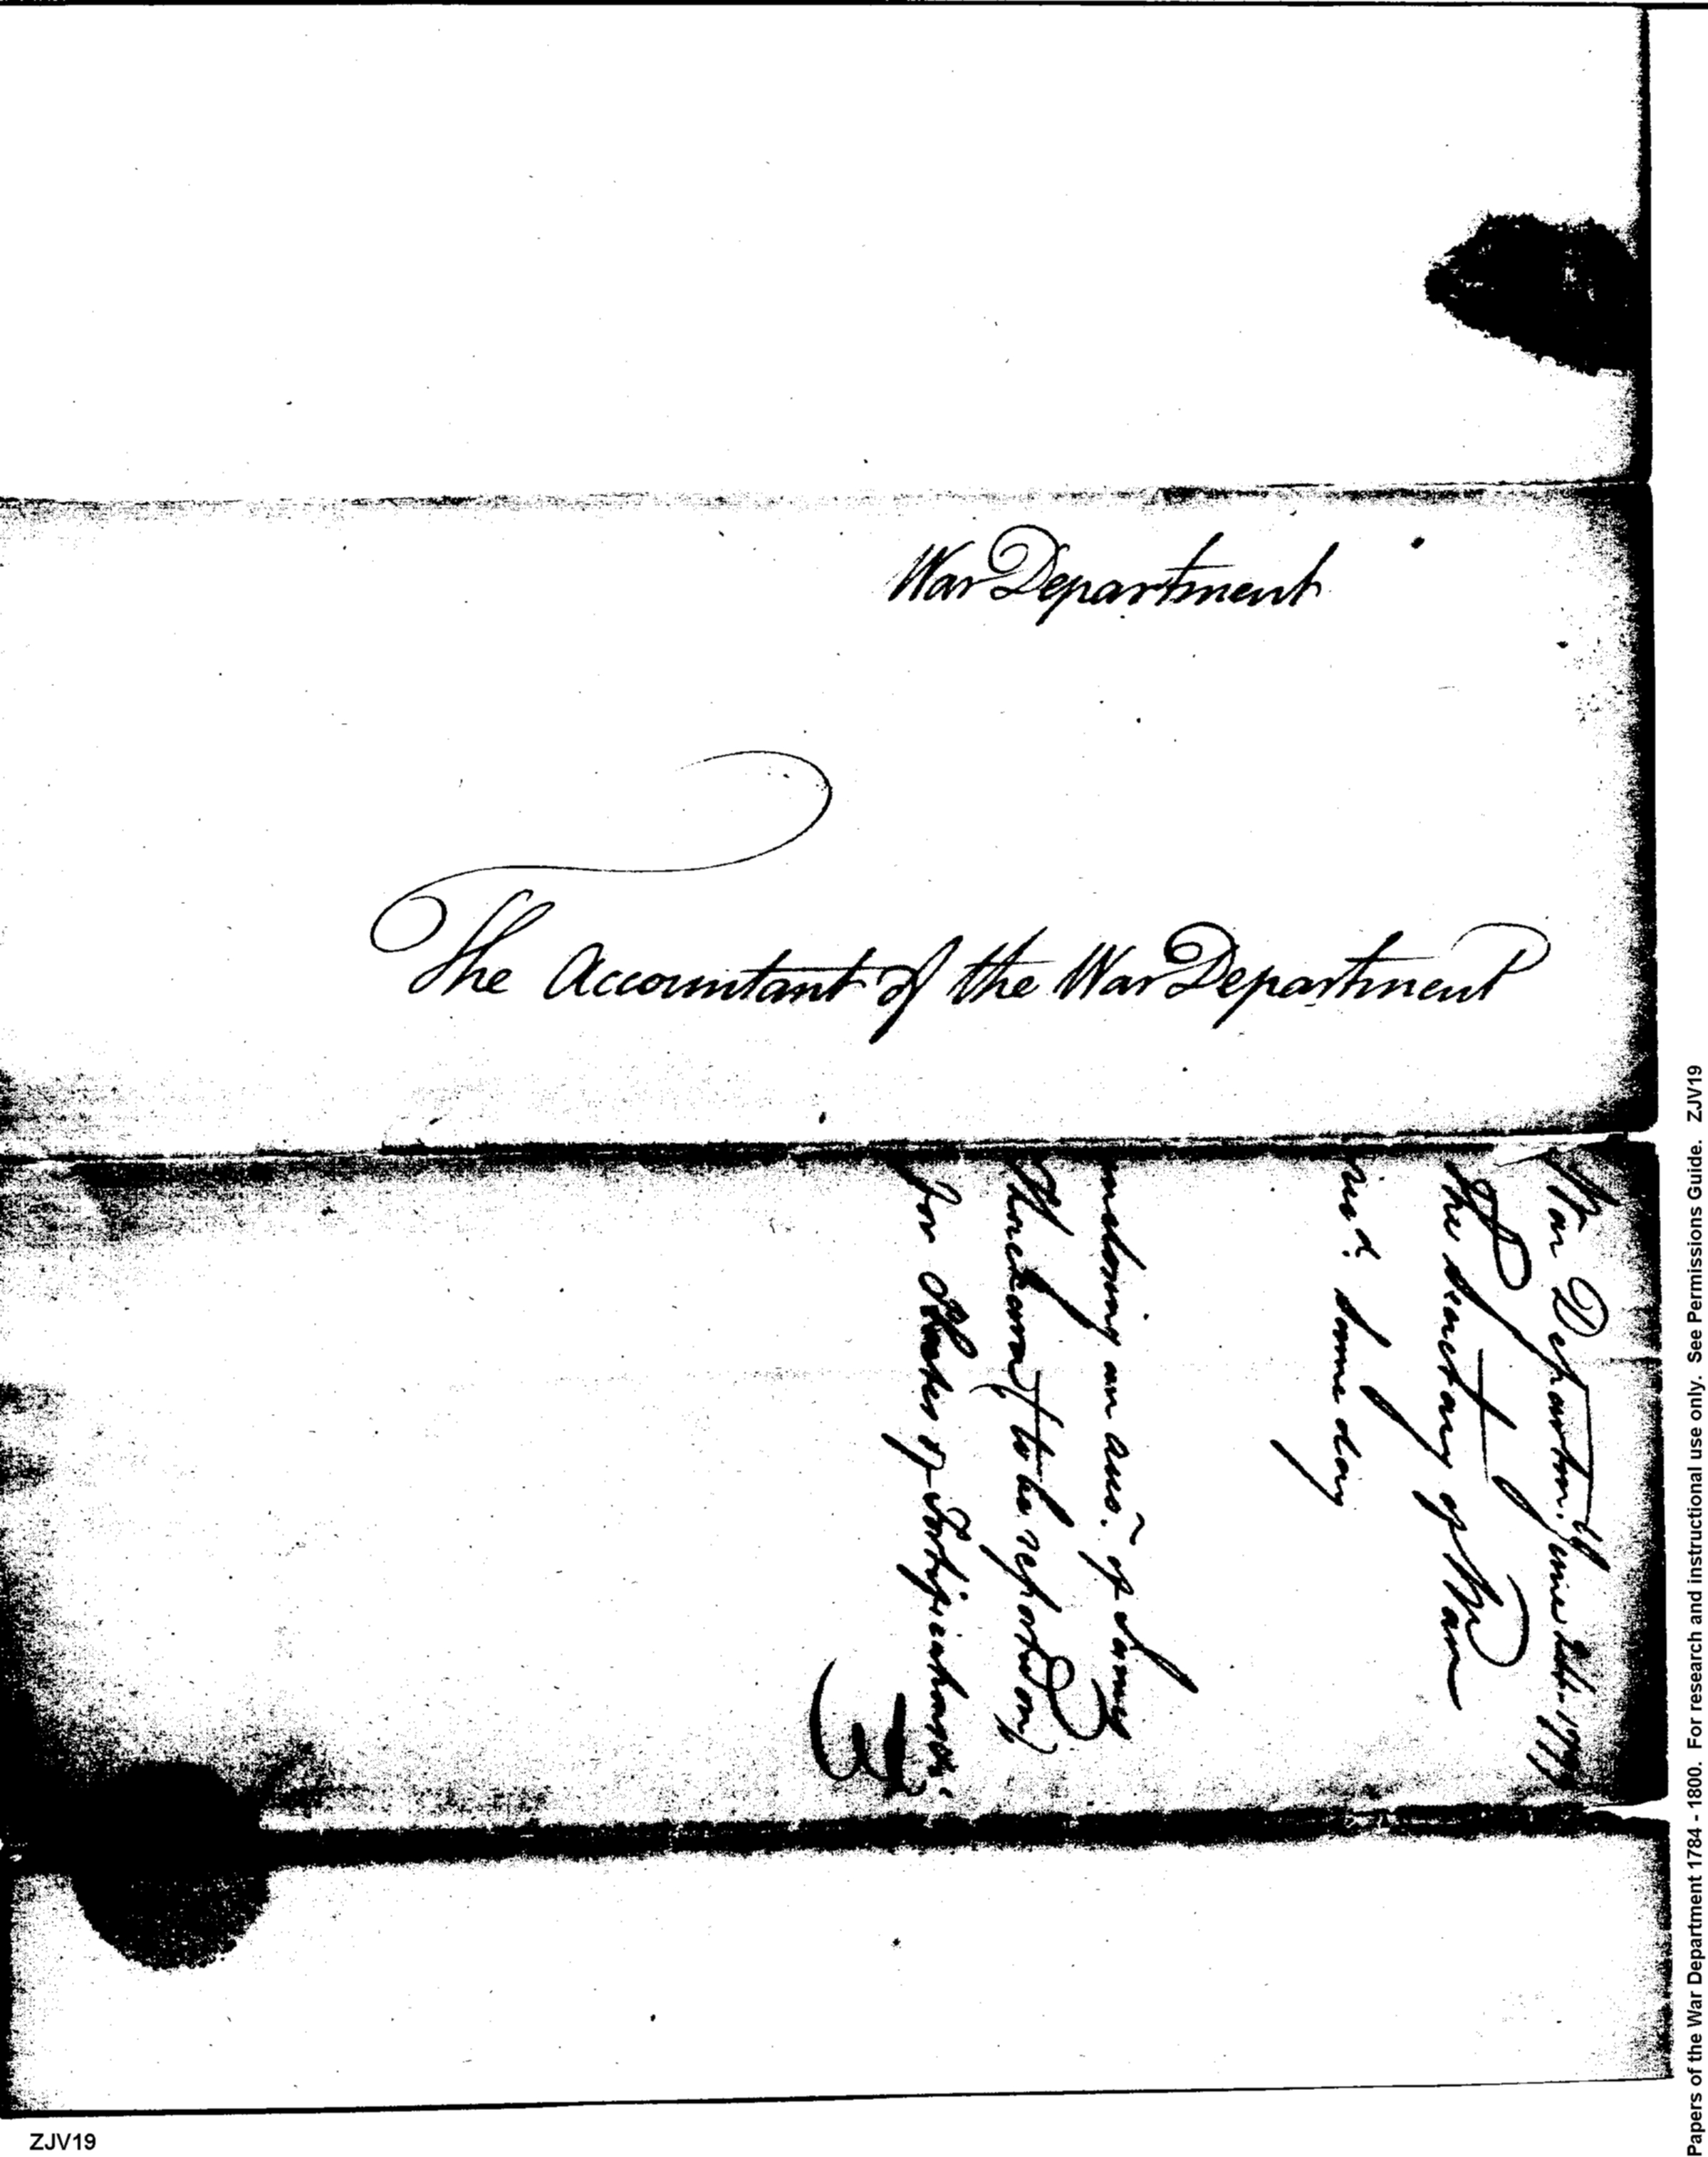 War Department
The Accountant of the War Department
War Departm. June 24th 1799
The Secretary of War
recd. Same day
inclosing an acco. of Jamey
Thackara (to be reported on)
for Plates of Fortifications.
ZJV19
Papers of the War Department 1784 - 1800. For research and instructional use only. See Permissions Guide. ZJV19